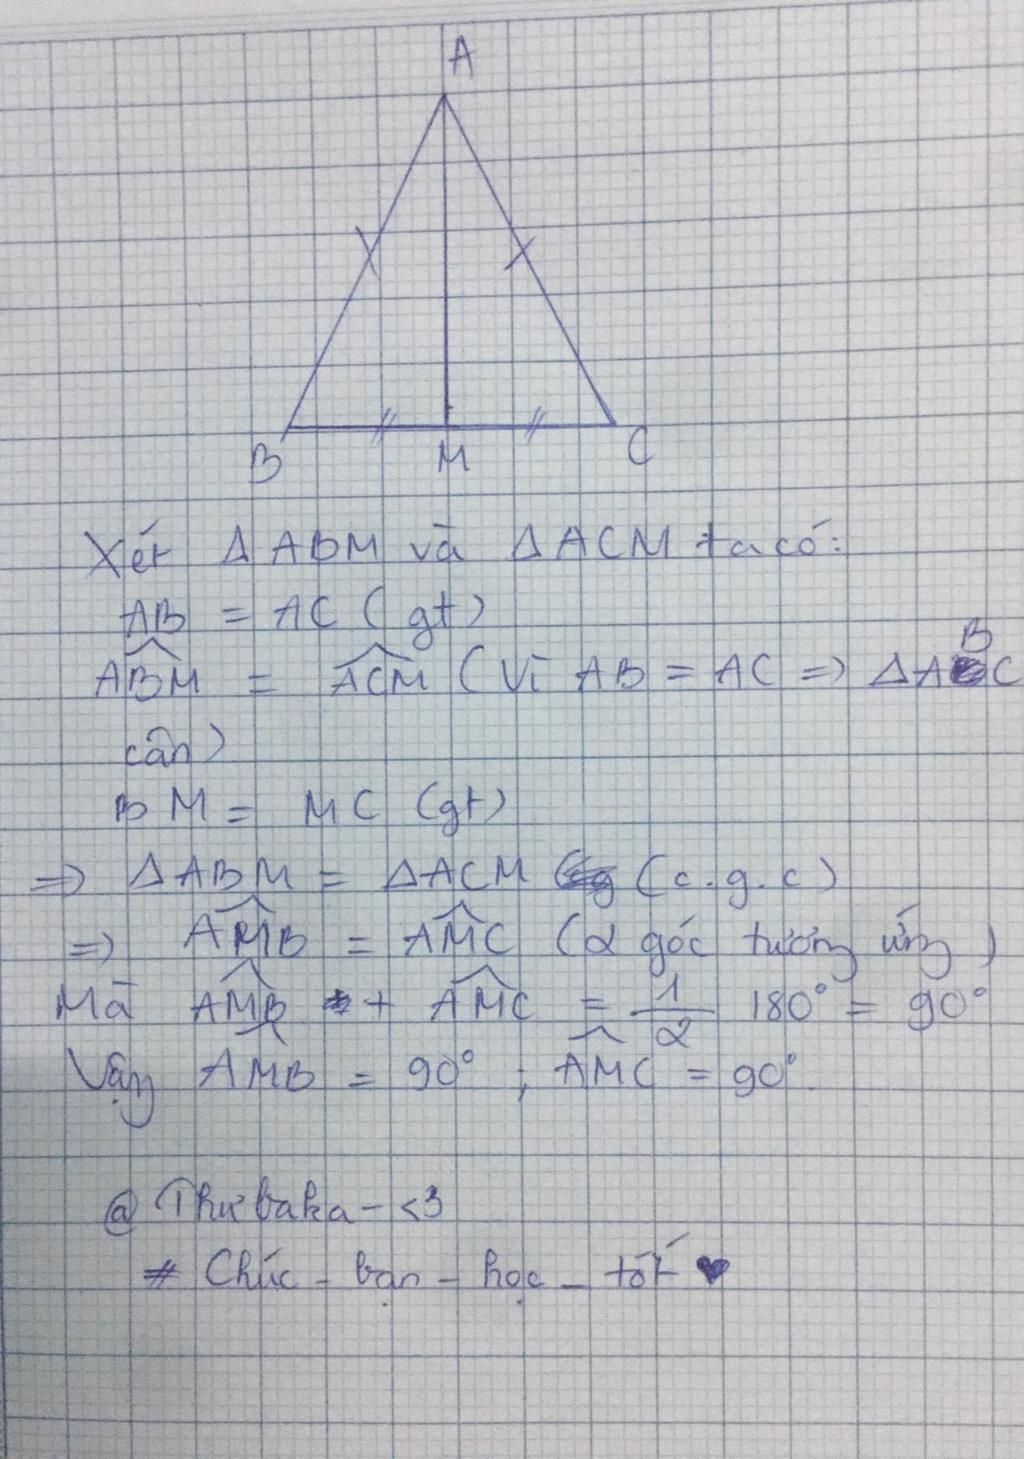 A
B M C
Xét Δ ABM và Δ ACM ta có:
AB = AC (gt)
B
ABM = ACM (Vì AB = AC => Δ ABC
cân)
BM = MC (gt)
=> Δ ABM = Δ ACM (c.g.c)
=> AMB = AMC (2 góc tương ứng)
Mà AMB + AMC = 1/2 180° = 90°
Vậy AMB = 90° ; AMC = 90°
@ Thư baka - <3
# Chúc - bạn - học - tốt ♥